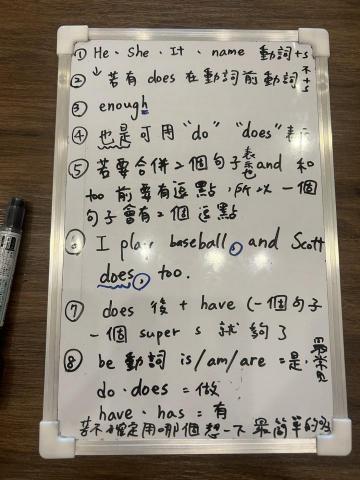 ① He、She、It、name 動詞+s
② ↓若有 does 在動詞前動詞不+s
③ enough
④ 也是可用"do" "does"表示
⑤ 若要合併2個句子表也 and 和
too 前要有逗點,所以一個
句子會有2個逗點
⑥ I play baseball, and Scott
does, too.
⑦ does 後 + have (一個句子
一個 super s 就夠了
⑧ be 動詞 is/am/are = 是,
do、does = 做
have、has = 有
若不確定用哪個想一下最簡單的